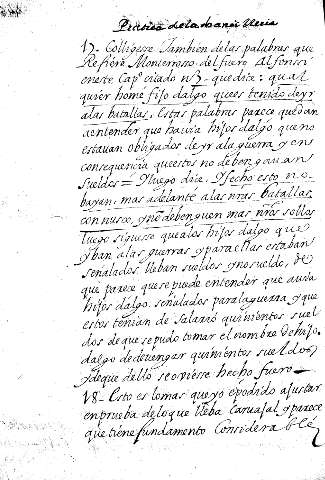 Practica de la
17- Colligesse Tambien delas palabras que
Refiere Monterroso. del fuero Alfonssi
en este Cap.º citado n.3. que dize: qual
quier home fijo dalgo que es tenido de yr
alas batallas. Estas palabras parece que dan
a entender que havia hijos dalgo que no
estavan obligados de yr ala guerra, y en
consequencia que estos no deben ganan
sueldos = Y luego dize. Y fecho esto, no
bayan, mas adelante alas nr̃as batallas
con nusco, y nõ deben quem mas nr̃os solbos
luego siguesse que alos hijos dalgo que
yban alas guerras y para ellas estaban
señalados. lleban sueldos y no sueldo, de
que parece que se puede entender que auia
hijos dalgo. señalados para la guerra y que
estos tenian de salario quinientos suel
dos de que se pudo tomar el nombre de hijo.
dalgo de devengar quinientos sueldos
y de que dello se oviesse hecho fuero-
18- Esto es lo mas que yo è podido ajustar
en prueba de lo que lleba Carvajal y parece
que tiene fundamento Considerable